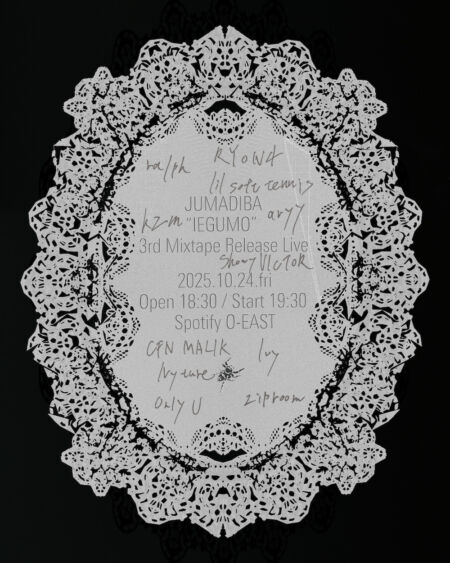 ralph
RYOWA
lil soft tennis
JUMADIBA
kzm “IEGUMO” aryy
3rd Mixtape Release Live
Shony VICTOR
2025.10.24.fri
Open 18:30 / Start 19:30
Spotify O-EAST
CFN MALIK Ivy
Ivyture
Only U ziproom